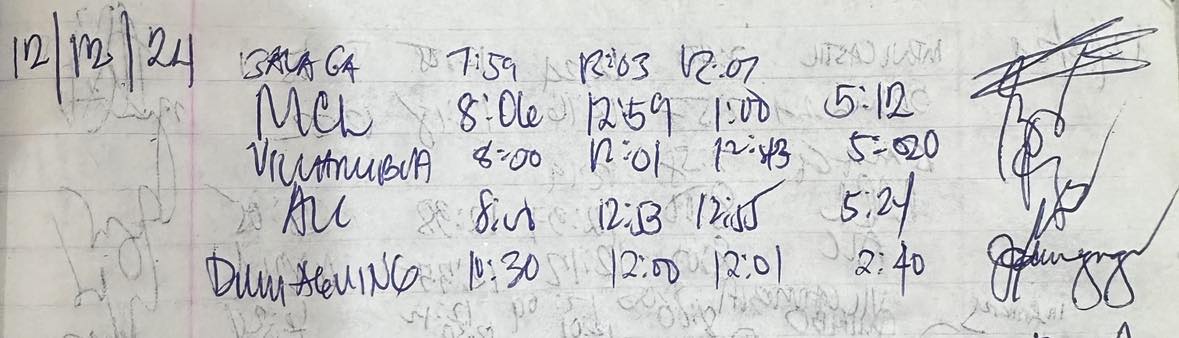 12/12/24 BALAGA 7:59 12:03 12:07
MCL 8:06 12:59 1:00 5:12
VILLANUEVA 8:00 12:01 12:43 5:020
12:53 12:55 5:24
DUMAGUING 10:30 12:00 12:01 2:40